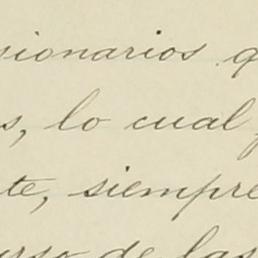 sionarios q
s, lo cual f
te, siempre
urso de las